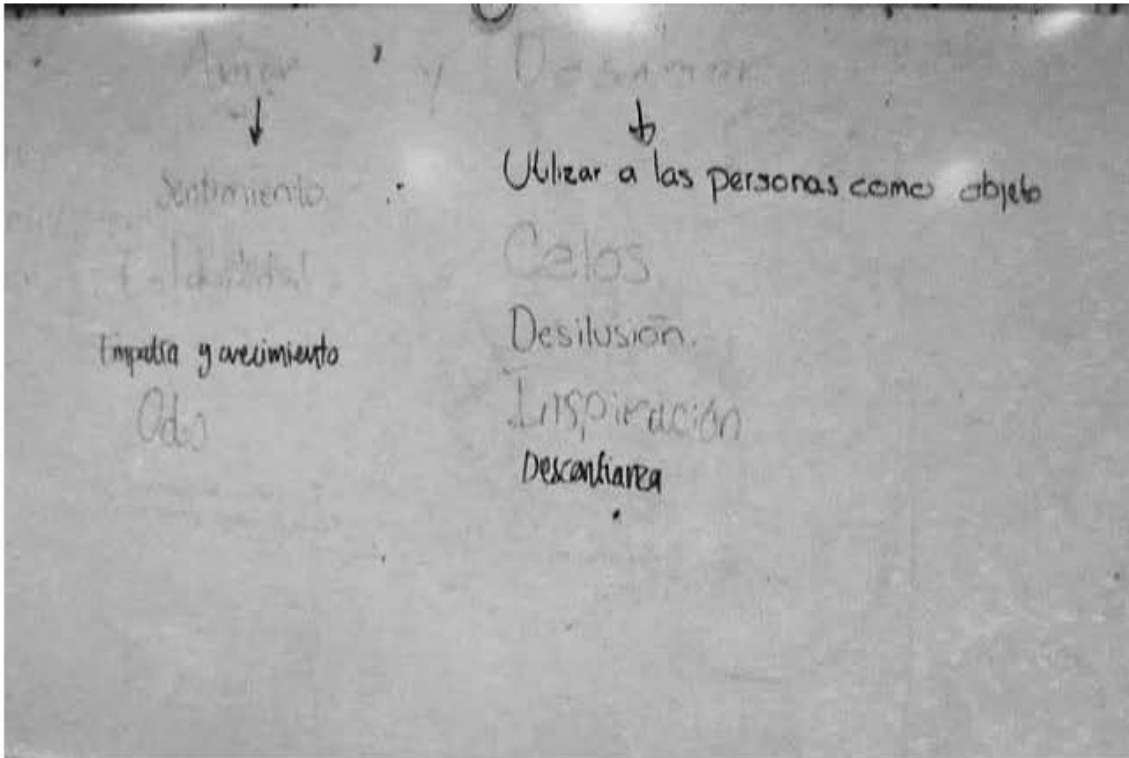 Amor y Desamor
Sentimiento
Empatía y crecimiento
Odio
Utilizar a las personas como objeto
Celos
Desilusión.
Inspiración
Desconfianza